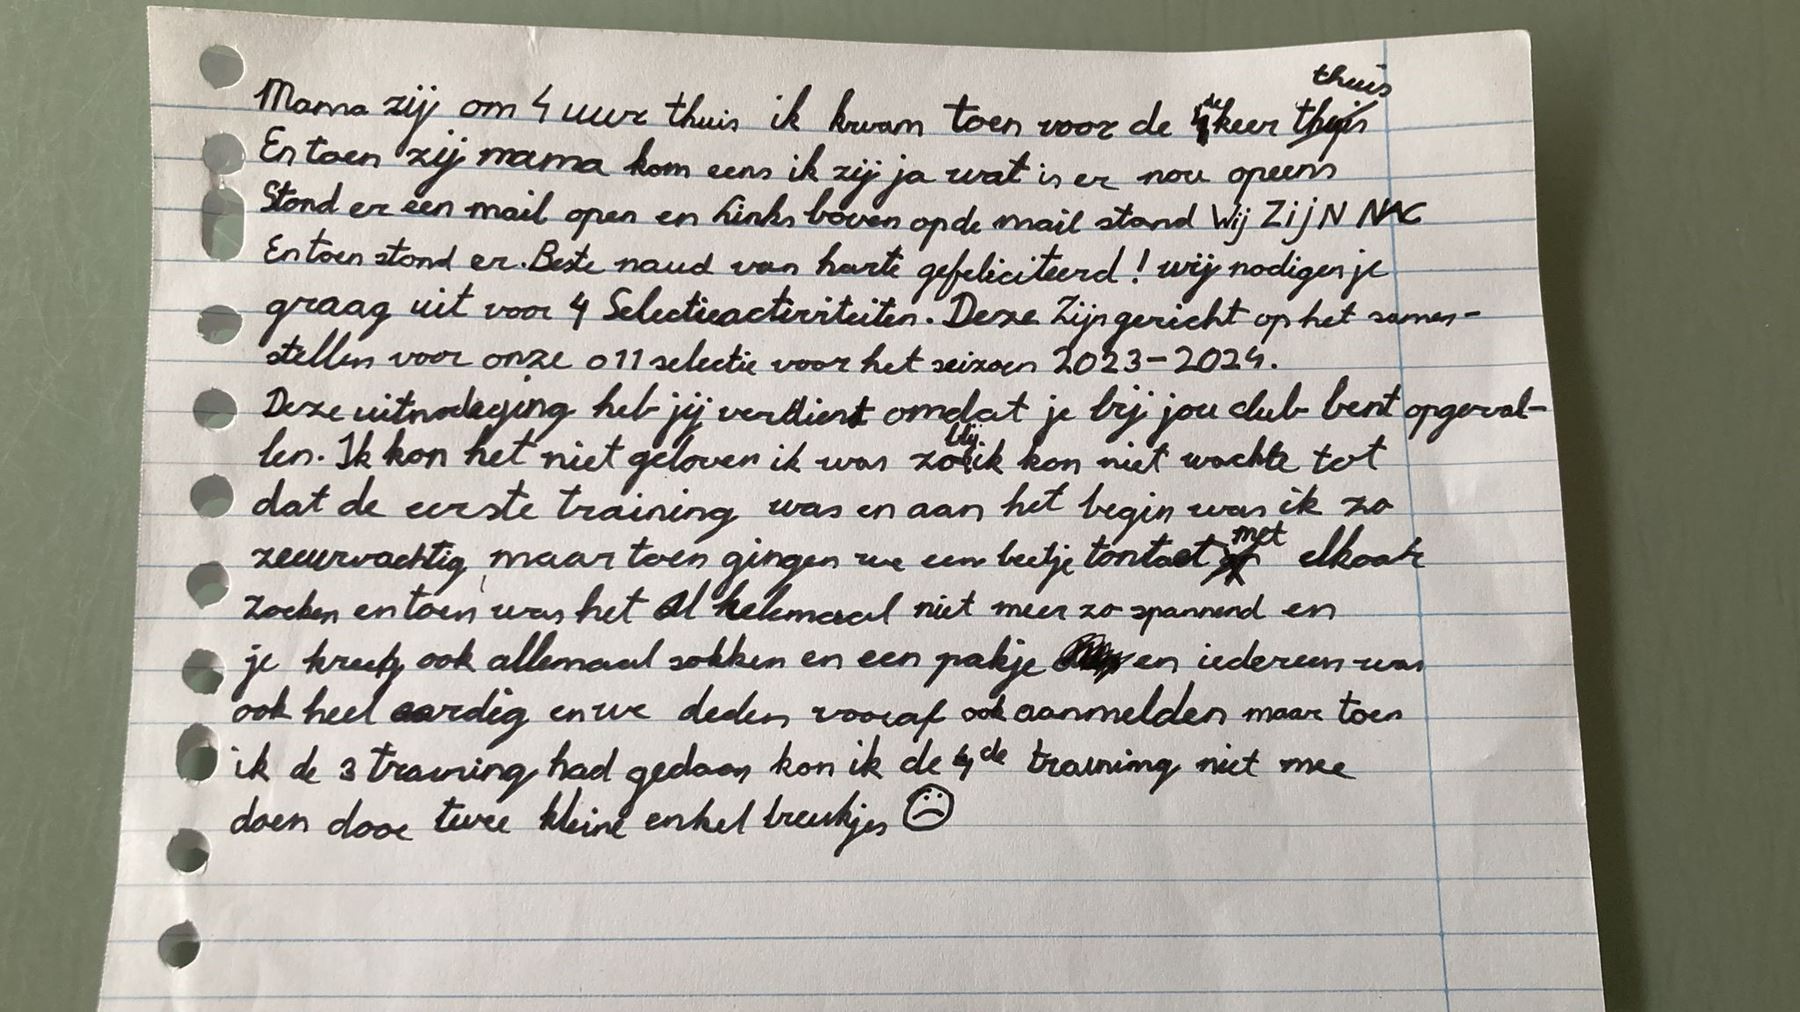 Mama zij om 4 uur thuis ik kwam toen voor de 4de keer thuis
En toen zij mama kom eens ik zij ja wat is er nou opeens
Stond er een mail open en Links boven op de mail stand Wij ZijN NAC
En toen stond er. Beste naud van harte gefeliciteerd! wij nodigen je
graag uit voor 4 Selectieactiviteiten. Deze Zijn gericht op het samen-
stellen voor onze o11 selectie voor het seizoen 2023-2024.
Deze uitnodeging heb jij verdient omdat je bij jou club bent opgeval-
len. Ik kon het niet geloven ik was zo blij. ik kon niet wachte tot
dat de eerste training was en aan het begin was ik zo
zeuwrvachtig, maar toen gingen we een beetje contact met elkaar
zoeken en toen was het al helemaal niet meer zo spannend en
je kreeg ook allemaal sokken en een pakje en iedereen was
ook heel aardig en we deden vooraf ook aanmelden maar toen
ik de 3 training had gedaan kon ik de 4de training niet mee
doen door twee kleine enkel breukjes